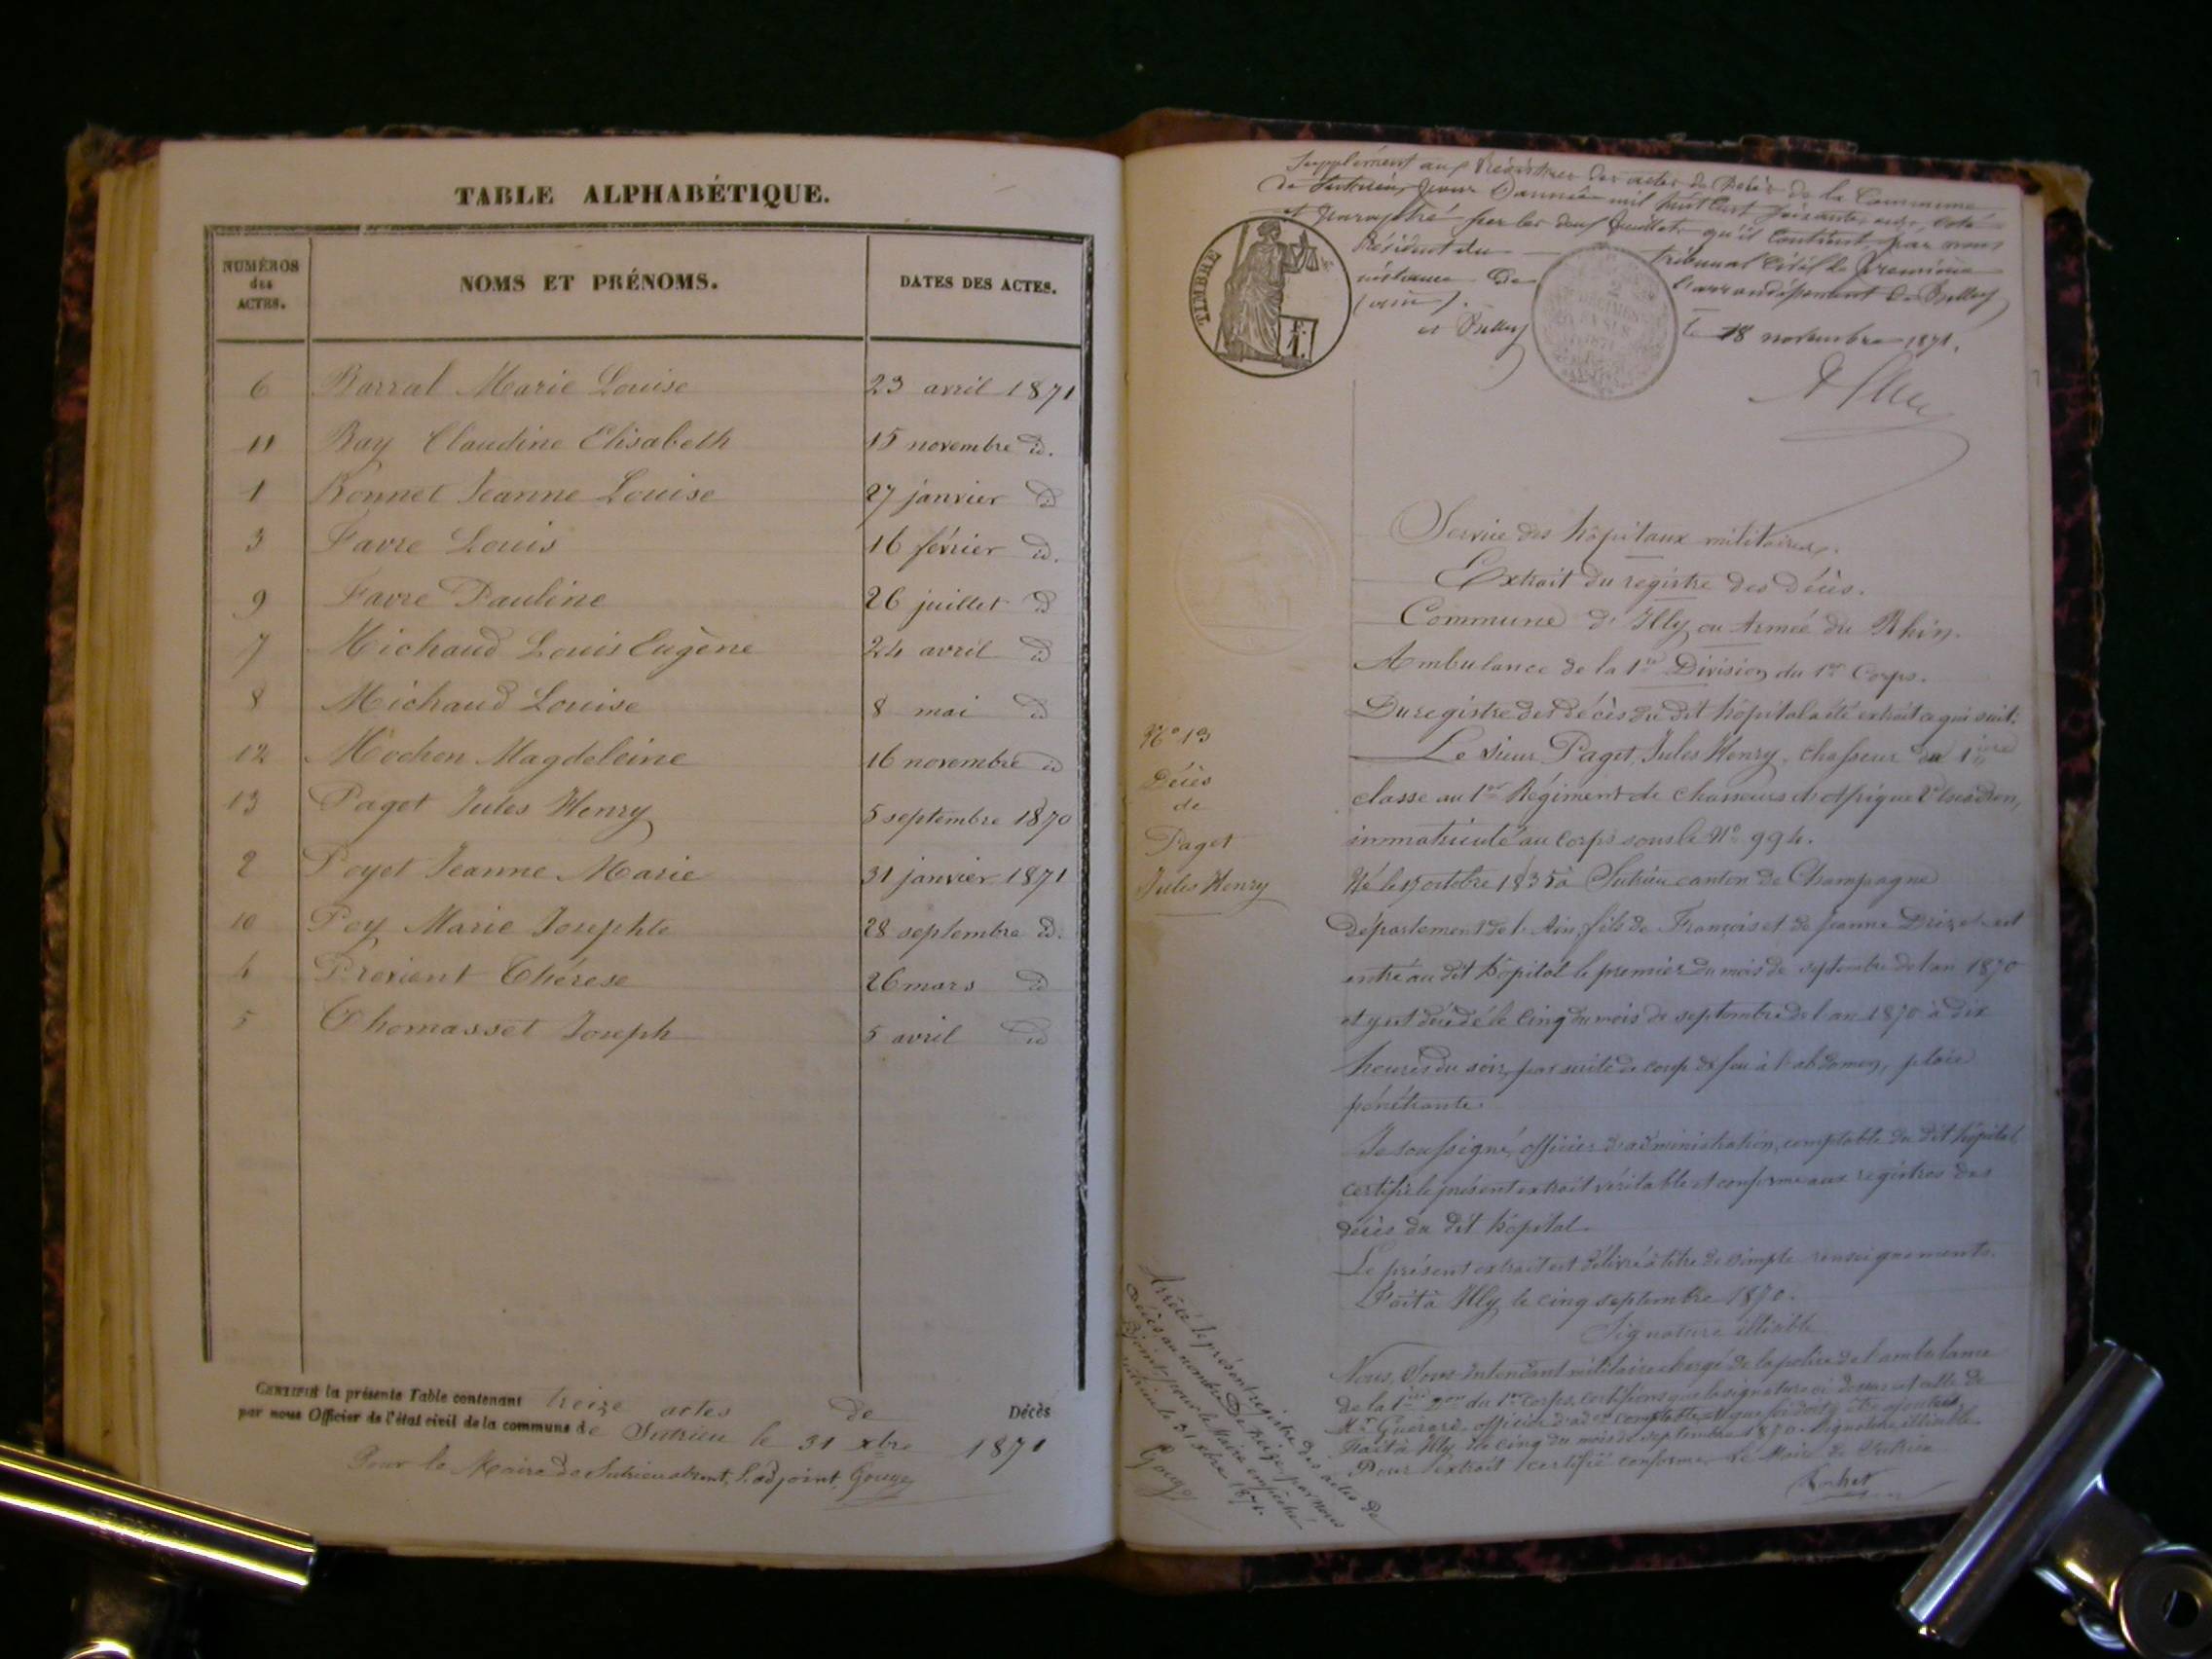 TABLE ALPHABÉTIQUE.
NUMÉROS
des
ACTES.
NOMS ET PRÉNOMS.
DATES DES ACTES.
6 Barral Marie Louise 23 avril 1871
11 Bay Claudine Elisabeth 15 novembre id.
1 Bonnet Jeanne Louise 27 janvier id
3 Favre Louis 16 février id.
9 Favre Pauline 26 juillet id
7 Michaud Louis Eugène 24 avril id
8 Michaud Louise 8 mai id
12 Mochon Magdeleine 16 novembre id
13 Paget Jules Henry 5 septembre 1870
2 Poyet Jeanne Marie 31 janvier 1871
10 Poy Marie Josephte 28 septembre id.
4 Provient Thérese 26 mars id
5 Thomasset Joseph 5 avril id
CERTIFIÉ la présente Table contenant treize actes de Décès
par nous Officier de l'état civil de la commune de Sutrieu le 31 xbre 1871
Pour le Maire de Sutrieu absent, l'adjoint, Gouge
Supplément aux Régistres des actes de Décès de la Commune
de Sutrieu, pour l'année mil huit cent soixante onze, coté
et paraphé par les deux feuillets qu'il contient, par nous
Président du Tribunal Civil de première
instance de l'arrondissement de Belley
(ain).
à Belley le 18 novembre 1871.
TIMBRE
F.
1.
Service des hôpitaux militaires.
Extrait du registre des décès.
Commune d'Illy ou Armée du Rhin.
Ambulance de la 1re Division du 1er Corps.
Du registre des décès du dit hôpital a été extrait ce qui suit:
N° 13
Décès
de
Paget
Jules Henry
Le sieur Paget, Jules Henry, chasseur de 1ière
classe au 1er Régiment de chasseurs d'Afrique 2e Escadron,
immatriculé au corps sous le N° 994.
Né le 15 octobre 1835 à Sutrieu canton de Champagne
département de l'Ain, fils de François et de Jeanne Drizet est
entré au dit hôpital le premier du mois de septembre de l'an 1870
et y est décédé le cinq du mois de septembre de l'an 1870 à dix
heures du soir, par suite de coup de feu à l'abdomen, plaie
pénétrante.
Je soussigné, officier d'administration, comptable du dit hôpital
certifie le présent extrait véritable et conforme aux régistres des
décès du dit hôpital.
Le présent extrait est délivré à titre de simple renseignements.
Fait à Illy le cinq septembre 1870.
Signature illisible
Nous, Sous-Intendant militaire chargé de la police de l'ambulance
de la 1ière Don du 1er Corps, certifions que la signature ci-dessus est celle de
Mr Guérard, officier d'ad on comptable et que foi doit y être ajoutée.
Fait à Illy, le cinq du mois de septembre 1870. Signature illisible
Pour extrait certifié conforme Le Maire de Sutrieu
Arrêté le présent registre des actes de
Décès au nombre de treize, par nous
adjoint, pour le Maire empêché
Sutrieu le 31 xbre 1871.
Gouge